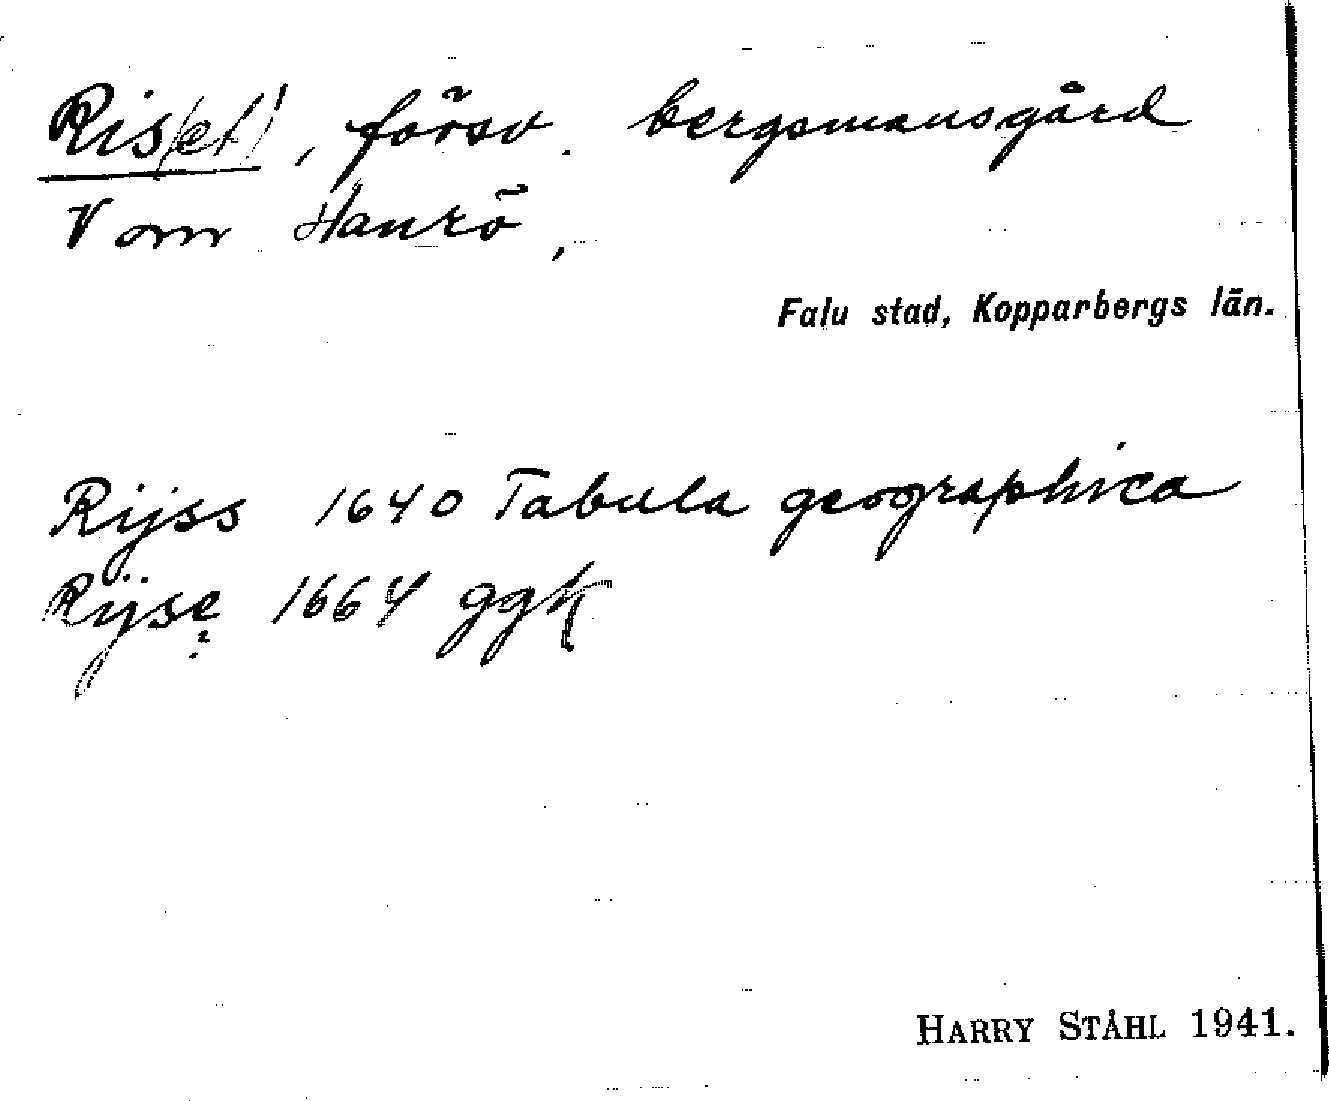 Ris(et), försv. bergsmansgård
V om Hanrö,
Falu stad, Kopparbergs län.
Rijss 1640 Tabula geographica
Rÿse 1664 ggk
HARRY STÅHL 1941.